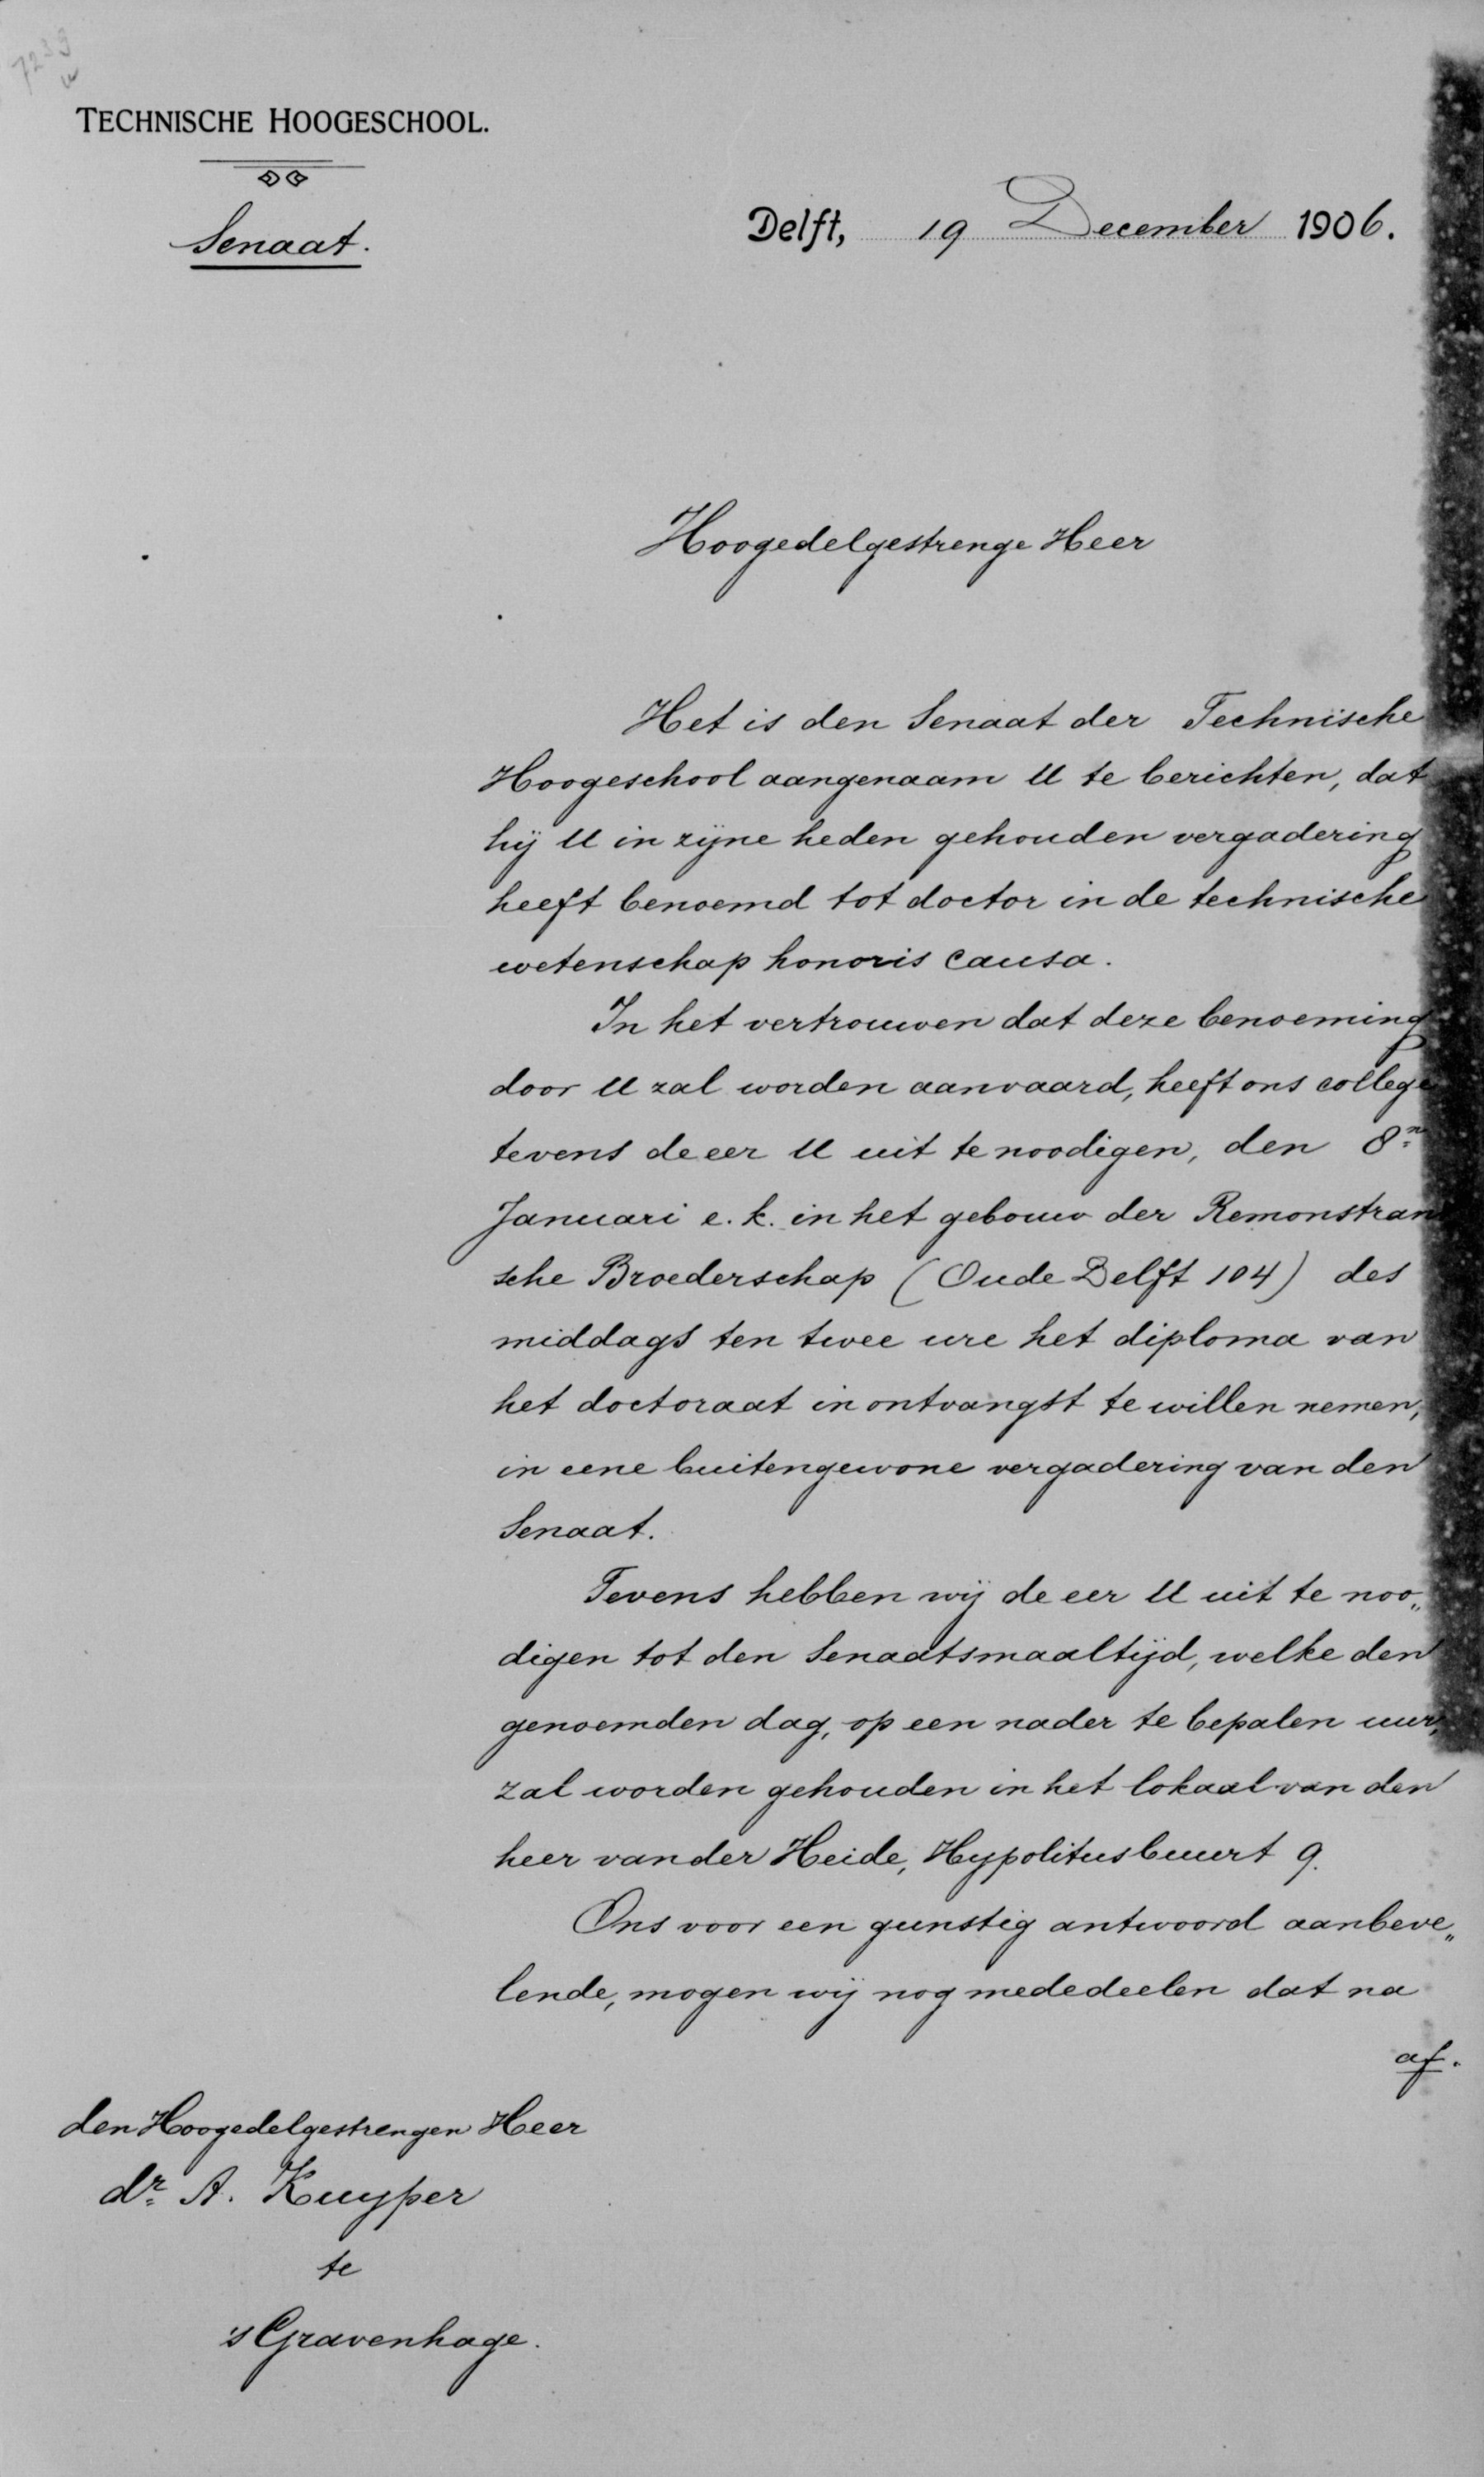 7233
TECHNISCHE HOOGESCHOOL.
Senaat.
Delft, 19 December 1906.
Hoogedelgestrenge Heer
Het is den Senaat der Technische
Hoogeschool aangenaam U te berichten, dat
hij U in zijne heden gehouden vergadering
heeft benoemd tot doctor in de technische
wetenschap honoris causa.
In het vertrouwen dat deze benoeming
door U zal worden aanvaard, heeft ons college
tevens de eer U uit te noodigen, den 8n
Januari e.k. in het gebouw der Remonstran
sche Broederschap (Oude Delft 104) des
middags ten twee ure het diploma van
het doctoraat in ontvangst te willen nemen,
in eene buitengewone vergadering van den
Senaat.
Tevens hebben wij de eer U uit te noo„
digen tot den Senaatsmaaltijd, welke den
genoemden dag, op een nader te bepalen uur,
zal worden gehouden in het lokaal van den
heer van der Heide, Hypolitusbuurt 9.
Ons voor een gunstig antwoord aanbeve„
lende, mogen wij nog mededeelen dat na
af.
den Hoogedelgestrengen Heer
dr. A. Kuyper
te
's Gravenhage.